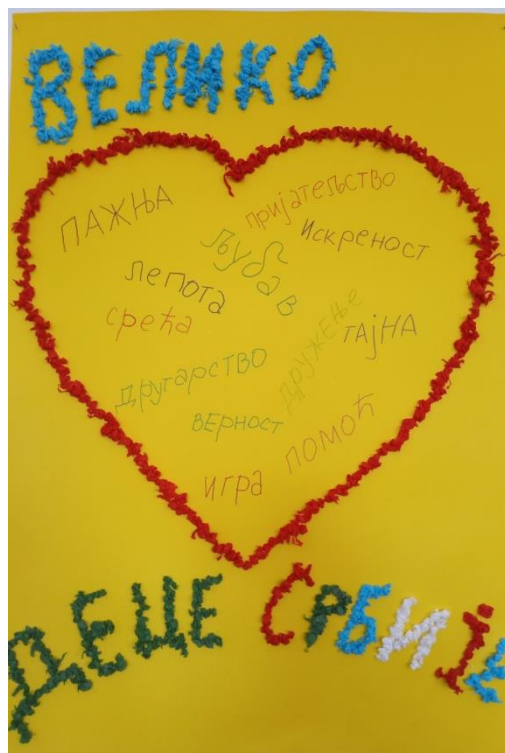 ВЕЛИКО
ПАЖЊА
пријатељство
љубав
Искреност
лепота
срећа
дружење
ТАЈНА
другарство
верност
помоћ
игра
ДЕЦЕ СРБИЈЕ